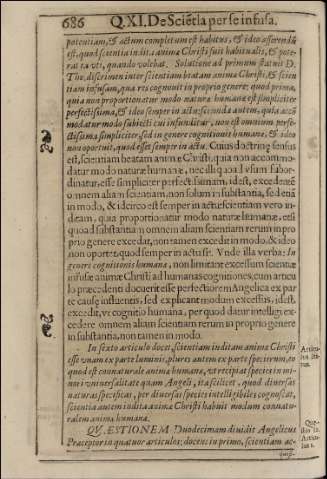 686 Q.XI. De Sciẽtia per se infusa.
potentiam, & actum completum est habitus, & ideo asserendũ
est, quod scientia indita animæ Christi fuit habitualis, & pote-
rat ea vti, quando volebat. Solutione ad primum statuit D.
Tho. discrimen inter scientiam beatam animæ Christi, & scien
tiam infusam, qua res cognouit in proprio genere; quod prima,
quia non proportionatur modo naturæ humanæ est simpliciter
perfectissima, & ideo semper in actu; secunda autem, quia accõ
modatur modo subiecti cui infunditur, non est omnium perfe-
ctissima simpliciter, sed in genere cognitionis humanæ, & ideo
non oportuit, quod esset semper in actu. Cuius doctrinę sensus
est, scientiam beatam animæ Christi, quia non accommo-
datur modo naturæ humanæ, nec illi quoad vsum subor-
dinatur, esse simpliciter perfectissimam, idest, excedere
omnem aliam scientiam non solum in substantia, sed etiã
in modo, & idcirco est semper in actu: scientiam vero in-
ditam, quia proportionatur modo naturæ humanæ, etsi
quoad substantiam omnem aliam scientiam rerum in pro
prio genere excedat, non tamen excedit in modo, & ideo
non oportet, quod semper in actu sit. Vnde illa verba: In
genere cognitionis humanæ, non limitant excessum scientiæ
infusæ animæ Christi ad humanas cognitiones, cum articu
lo præcedenti docuerit esse perfectiorem Angelica ex par
te causę influentis, sed explicant modum excessus, idest,
excedit, vt cognitio humana, per quod datur intelligi ex-
cedere omnem aliam scientiam rerum in proprio genere
in substantia, non tamen in modo.
In sexto articulo docet, scientiam inditam animæ Christi
esse vnam ex parte luminis, plures autem ex parte specierum, eo
quod est connaturale animæ humanæ, vt recipiat species in mi-
nori vniuersalitate quam Angeli, ita scilicet, quod diuersas
naturas specificas, per diuersas species intelligibiles cognoscat,
scientia autem indita animæ Christi habuit modum connatu-
ralem animæ humanæ.
Articu
lus Sex
tus.
QVÆSTIONEM Duodecimam diuidit Angelicus
Præceptor in quatuor articulos; docens in primo, scientiam ac-
Quæ-
stio 12.
Articu-
lus 1.
quisi-